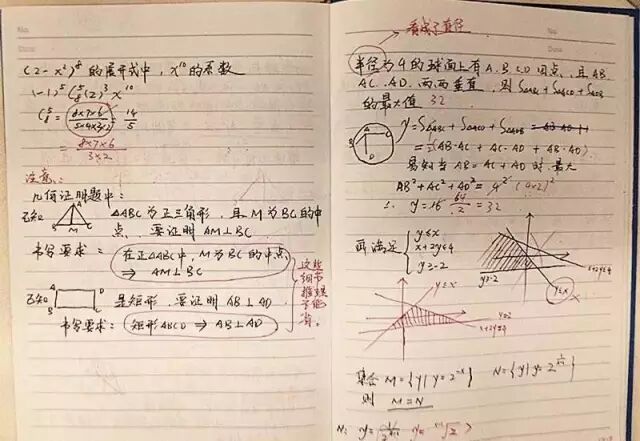 (2-x²)⁸的展开式中，x¹⁰的系数
(-1)⁵C₈⁵(2)³x¹⁰
C₈⁵ = (8×7×6)/(5×4×3×2) = 14/5
= (8×7×6)/(3×2)
注意：
几何证明题中：
已知 A B M C △ABC为正三角形，且M为BC的中
点，要证明AM⊥BC
书写要求：在正△ABC中，M为BC的中点，
⇒ AM⊥BC
已知 A D B C 是矩形，要证明AB⊥AD
书写要求：矩形ABCD ⇒ AB⊥AD
这些
细节
推
不能
看成了直径
半径为4的球面上有A.B.C.D四点，且AB.
AC.AD.两两垂直，则S△ABC+S△ACD+S△ADB
的最大值 32
y=S△ABC+S△ACD+S△ADB
=(AB·AC+AC·AD+AB·AD)
易知当AB=AC=AD时最大
AB²+AC²+AD²=4² (4×2)²
∴ y=16 64/2=32
满足
y≤x
x+2y≤4
y≥-2
y≥-2
x+2y≤4
y≤x
y≤x
x+2y≤4
集合M={y|y=2⁻ˣ}
则 M=N
N: y=